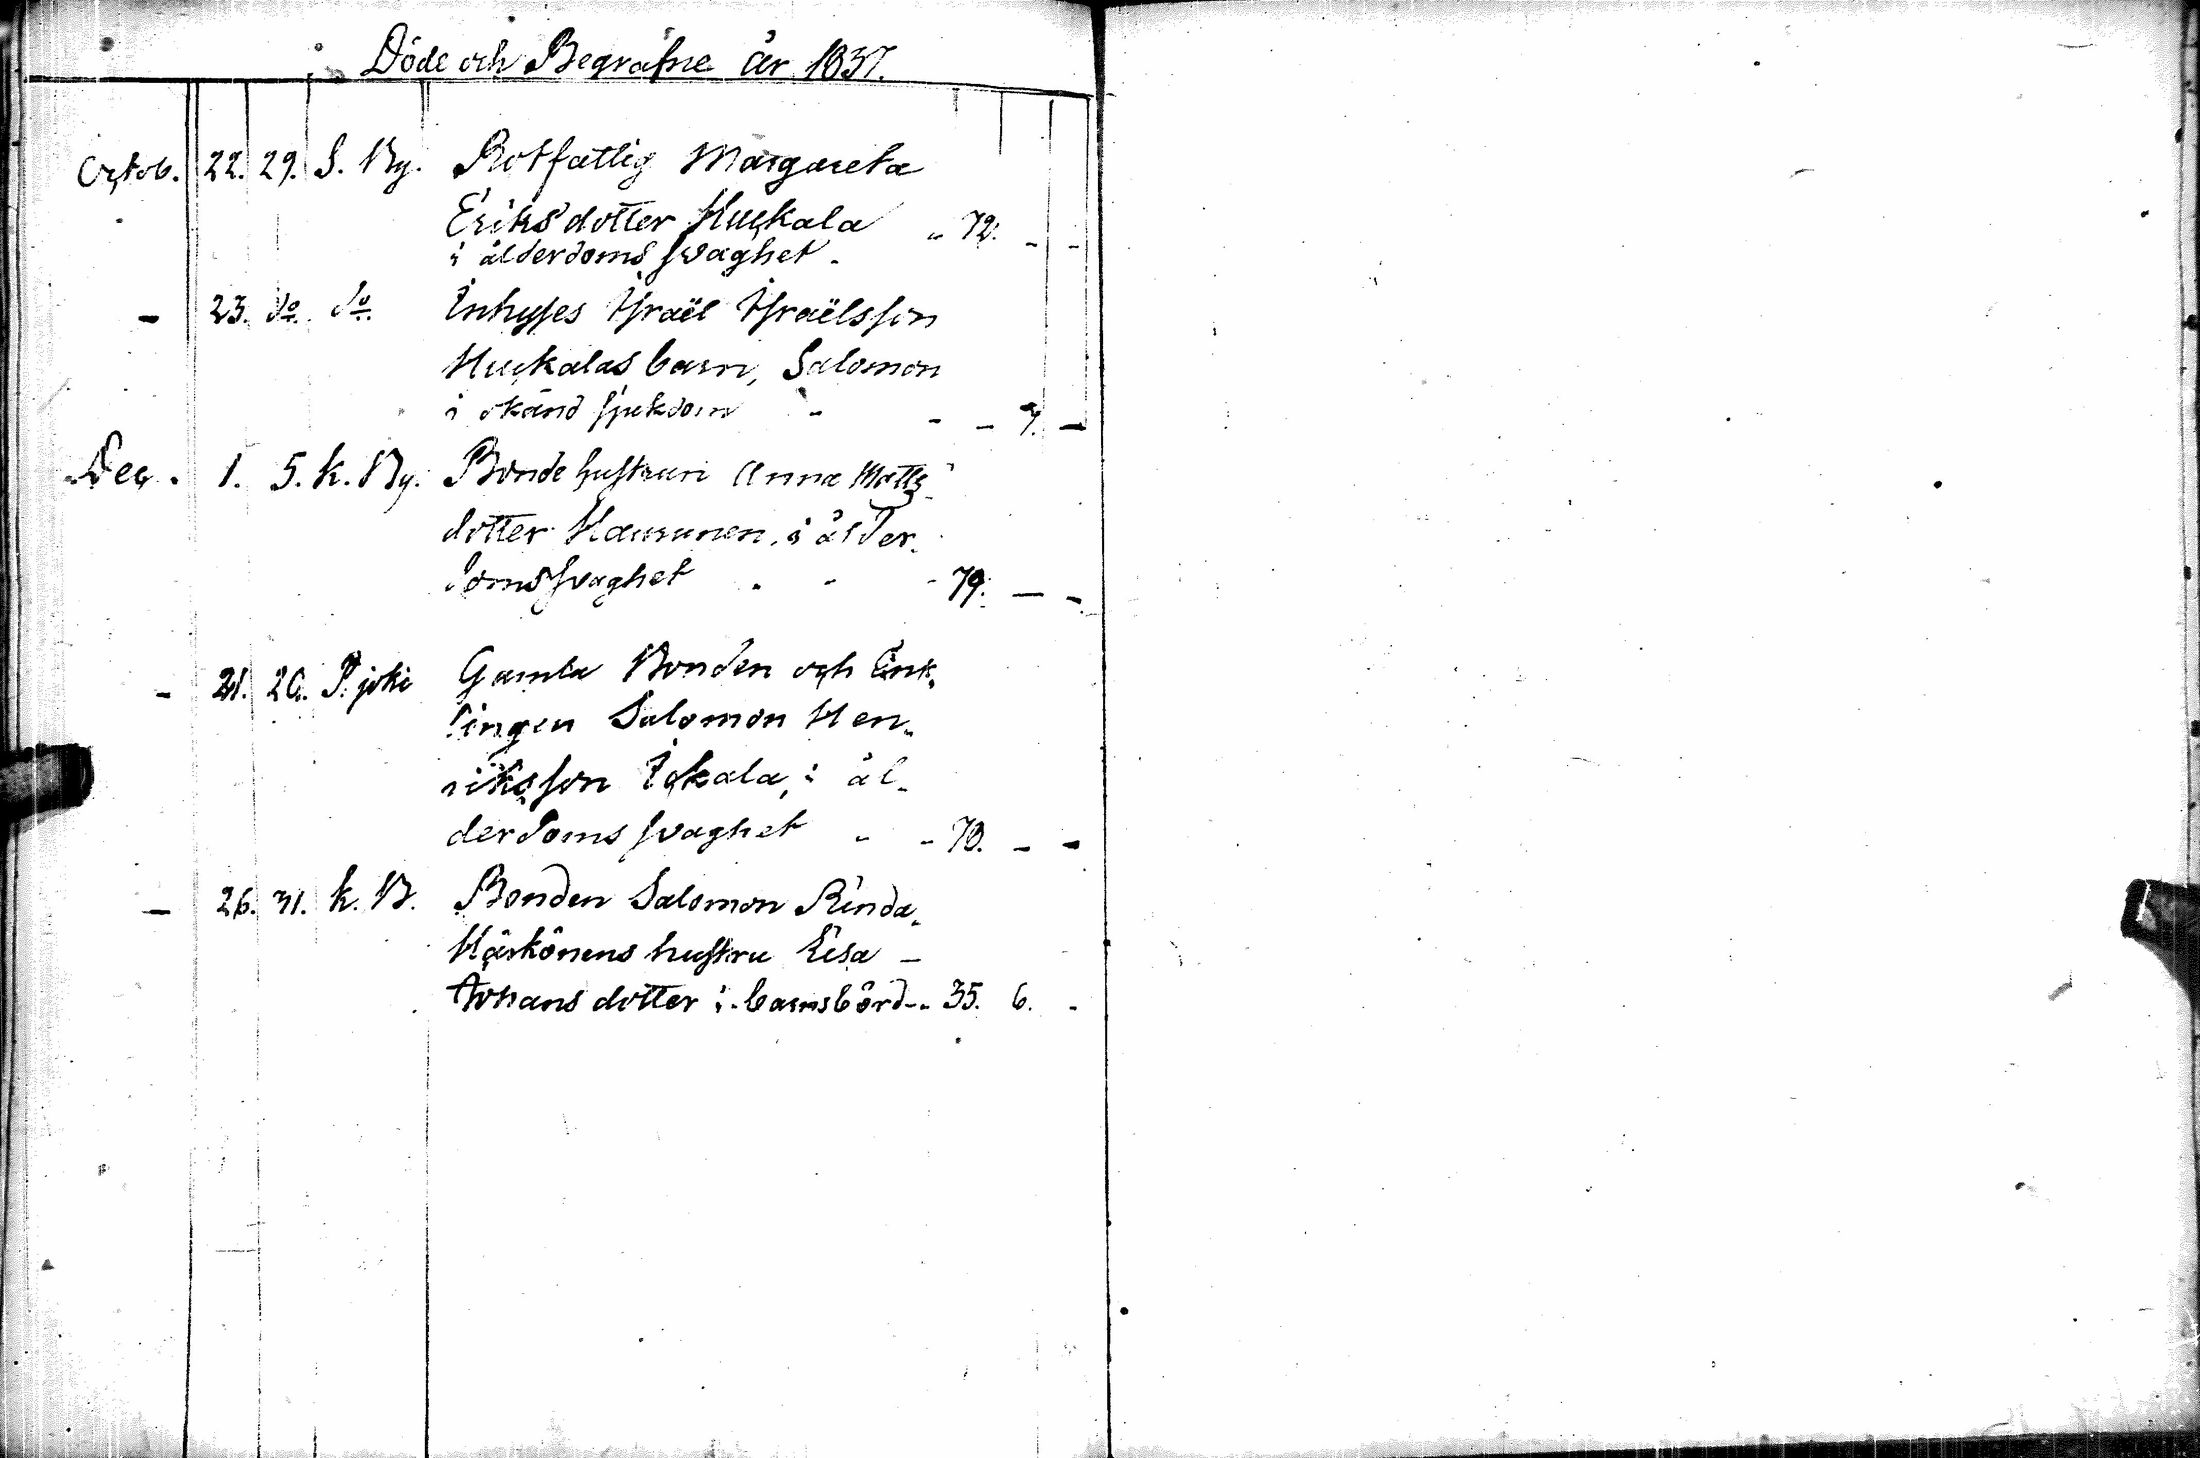 Döde och Begrafne år 1837.
Octob. 22. 29. S. By. Rotfattig Margareta
Eriksdotter Huckala " 72. - -
i ålderdoms svaghet -
- 23. do. do. Inhyses Israël Israëlsson
Huckalas barn, Salomon
i okänd sjukdom - - - 7. -
Dec. 1. 5. k. By. Bonde hustrun Anna Matts
dotter Haurunen, i ålder
doms svaghet - - - 79. - -
- 21. 26. P. joki Gamla Bonden och Enk
lingen Salomon Hen
riksson Iokala, i ål
derdoms svaghet - - 70. - -
- 26. 31. k. B. Bonden Salomon Rinda
Härkönens hustru Lisa -
Johans dotter i barnsbörd - - 35. 6. -